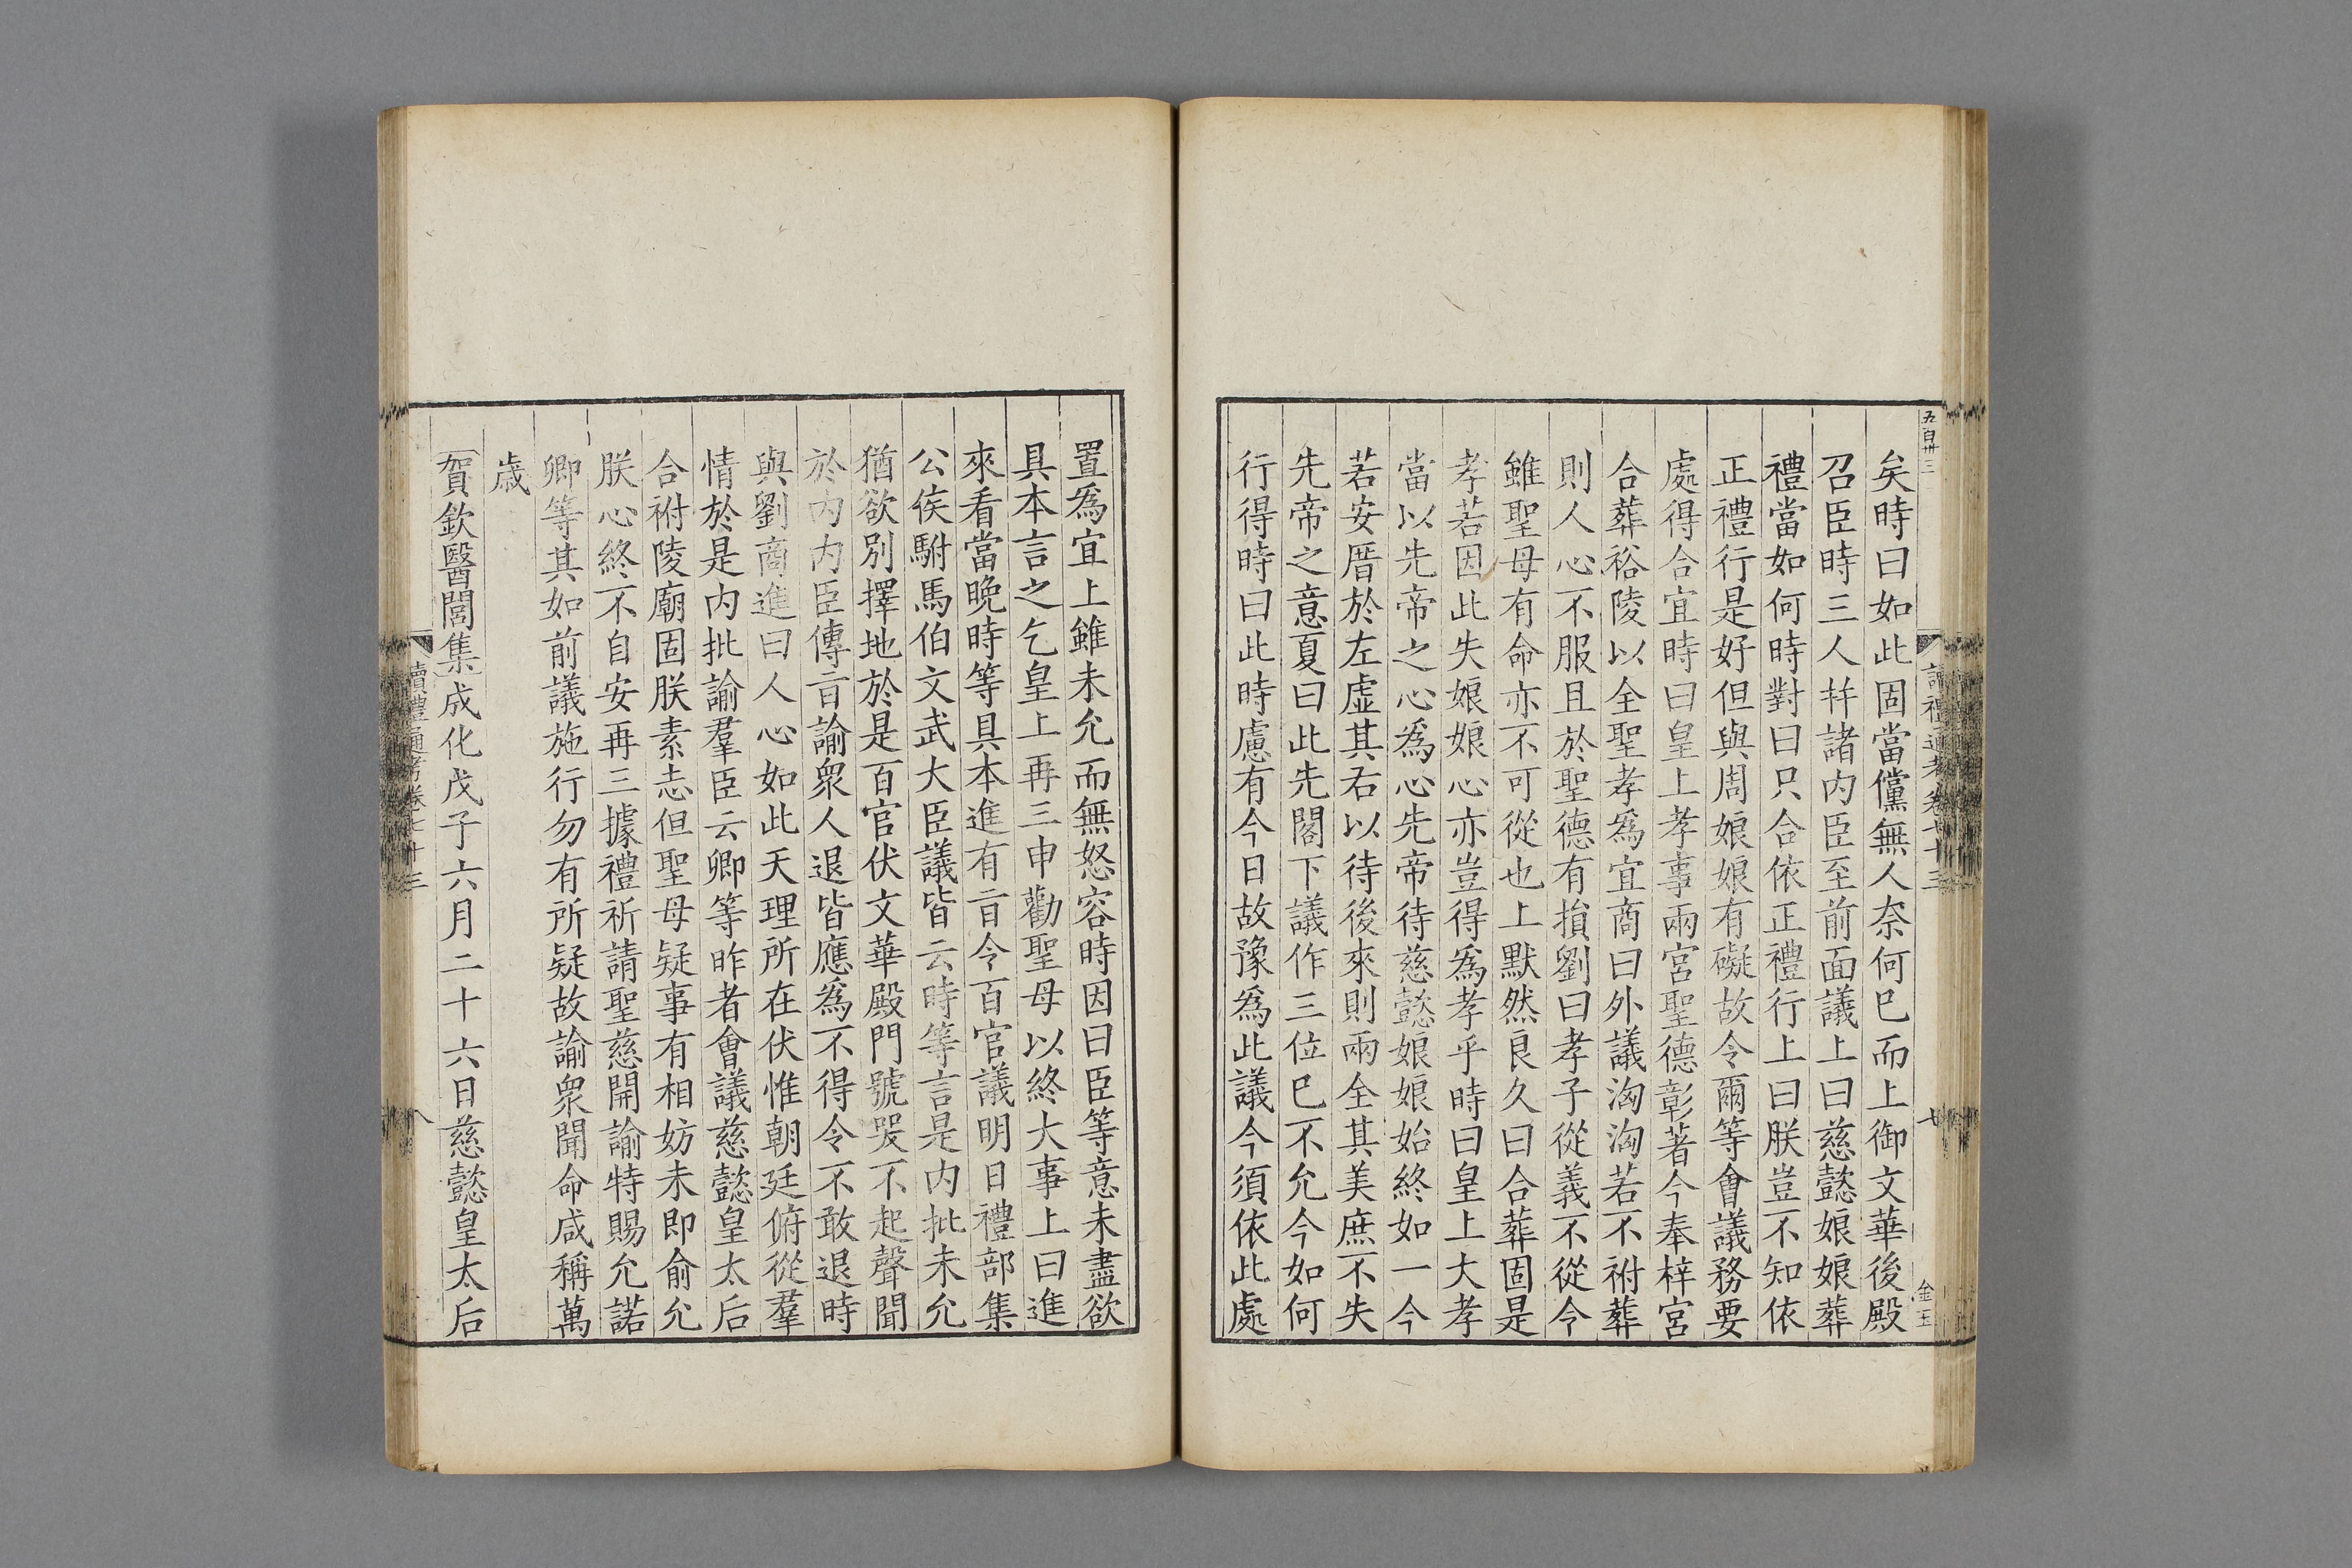 五百卅三
讀禮通考卷七十三
七
金玉
矣時曰如此固當儻無人奈何巳而上御文華後殿
召臣時三人并諸内臣至前面議上曰慈懿娘娘葬
禮當如何時對曰只合依正禮行上曰朕豈不知依
正禮行是好但與周娘娘有礙故令爾等會議務要
處得合宜時曰皇上孝事兩宮聖德彰著今奉梓宮
合葬裕陵以全聖孝爲宜商曰外議洶洶若不祔葬
則人心不服且於聖德有損劉曰孝子從義不從令
雖聖母有命亦不可從也上默然良久曰合葬固是
孝若因此失娘娘心亦豈得爲孝乎時曰皇上大孝
當以先帝之心爲心先帝待慈懿娘娘始終如一今
若安厝於左虛其右以待後來則兩全其美庶不失
先帝之意夏曰此先閣下議作三位巳不允今如何
行得時曰此時慮有今日故豫爲此議今須依此處
置爲宜上雖未允而無怒容時因曰臣等意未盡欲
具本言之乞皇上再三申勸聖母以終大事上曰進
來看當晚時等具本進有㫖令百官議明日禮部集
公侯駙馬伯文武大臣議皆云時等言是内批未允
猶欲別擇地於是百官伏文華殿門號哭不起聲聞
於内内臣傳㫖諭衆人退皆應爲不得令不敢退時
與劉商進曰人心如此天理所在伏惟朝廷俯從羣
情於是内批諭羣臣云卿等昨者會議慈懿皇太后
合祔陵廟固朕素志但聖母疑事有相妨未即俞允
朕心終不自安再三據禮祈請聖慈開諭特賜允諾
卿等其如前議施行勿有所疑故諭衆聞命咸稱萬
歲
賀欽醫閭集成化戊子六月二十六日慈懿皇太后
讀禮通考卷七十三
八